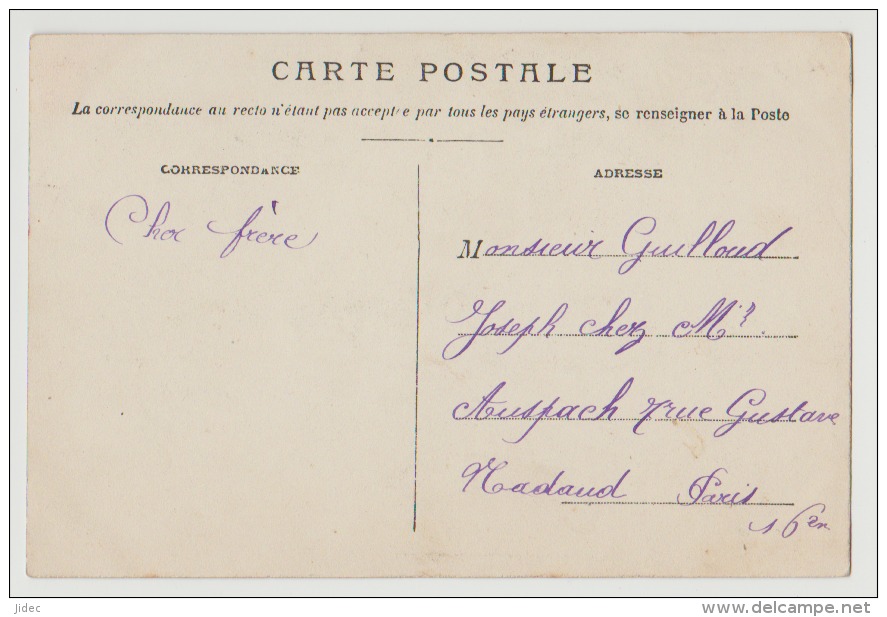 CARTE POSTALE
La correspondance au recto n'étant pas acceptée par tous les pays étrangers, se renseigner à la Poste
CORRESPONDANCE
Cher frère
ADRESSE
Monsieur Guilloud
Joseph chez Mr.
Auspach 7 rue Gustave
Nadaud Paris
16èm
Jidec
www.delcampe.net